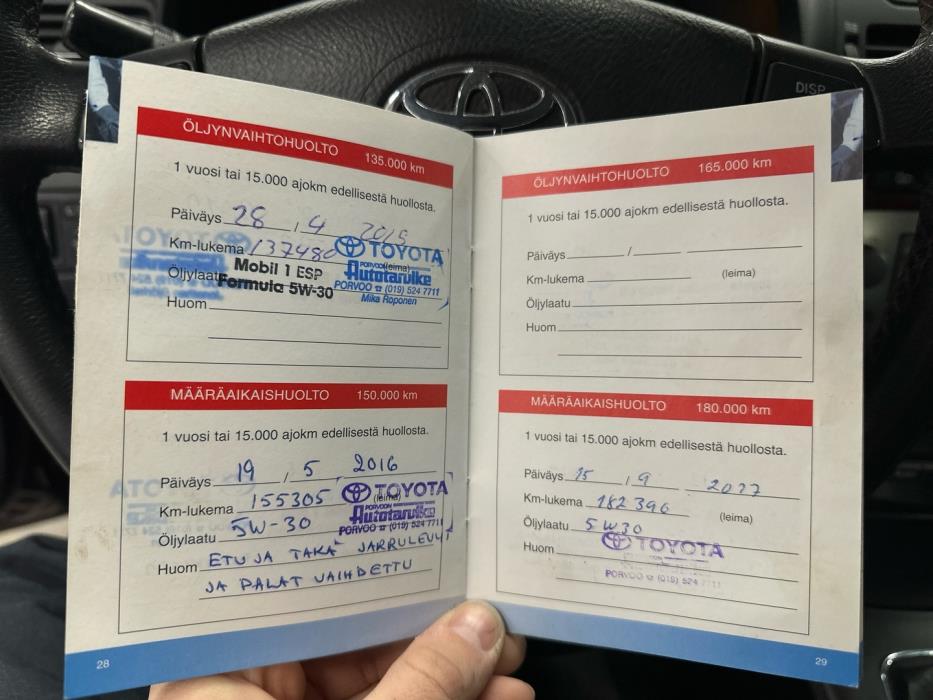 DISP
ÖLJYNVAIHTOHUOLTO 135.000 km
1 vuosi tai 15.000 ajokm edellisestä huollosta.
Päiväys 28 / 4
Km-lukema 137480 (leima)
TOYOTA
PORVOON
Autotarvike
PORVOO ☎ (019) 524 7711
Mika Roponen
Öljylaatu Mobil 1 ESP
Formula 5W-30
Huom
MÄÄRÄAIKAISHUOLTO 150.000 km
1 vuosi tai 15.000 ajokm edellisestä huollosta.
Päiväys 19 / 5 2016
Km-lukema 155305 (leima)
TOYOTA
PORVOON
Autotarvike
PORVOO ☎ (019) 524 7711
Öljylaatu 5W-30
Huom ETU JA TAKA JARRULEVYT
JA PALAT VAIHDETTU
28
ÖLJYNVAIHTOHUOLTO 165.000 km
1 vuosi tai 15.000 ajokm edellisestä huollosta.
Päiväys /
Km-lukema (leima)
Öljylaatu
Huom
MÄÄRÄAIKAISHUOLTO 180.000 km
1 vuosi tai 15.000 ajokm edellisestä huollosta.
Päiväys 15 / 9
Km-lukema 182396 (leima)
Öljylaatu 5W30
Huom
TOYOTA
PORVOO ☎ (019) 524 7711
29